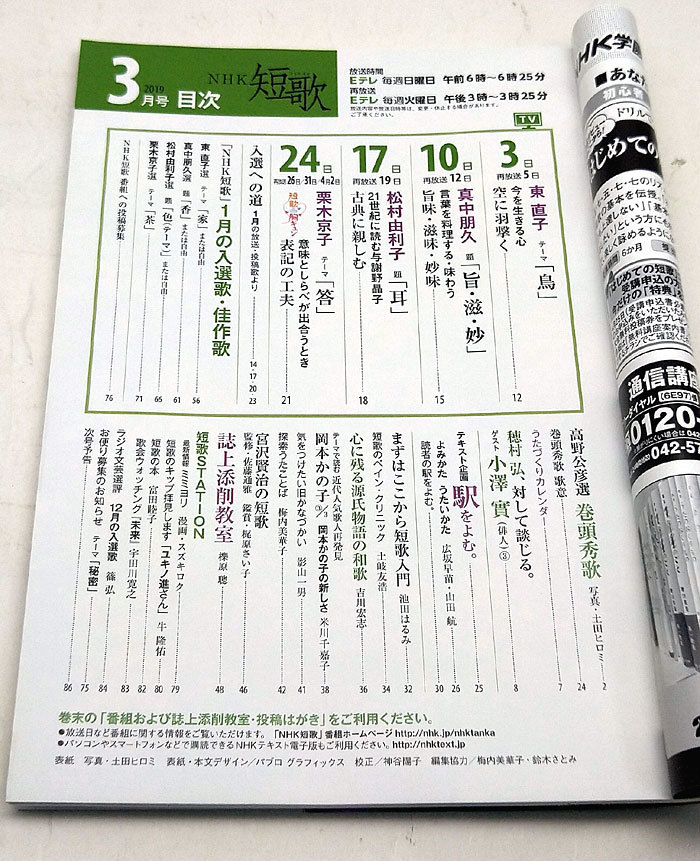 3月号
2019
NHK 短歌
目次
放送時間
Eテレ 毎週日曜日 午前6時~6時25分
再放送
Eテレ 毎週火曜日 午後3時~3時25分
放送内容や放送日時等は、変更・休止する場合があります。
ご了承ください。
TV
3日
再放送 5日
東 直子 テーマ「鳥」
今を生きる心
空に羽撃く 12
10日
再放送 12日
真中朋久 題「旨・滋・妙」
言葉を料理する・味わう
旨味・滋味・妙味 15
17日
再放送 19日
松村由利子 題「耳」
21世紀に読む与謝野晶子
古典に親しむ 18
24日
再放送 26日/31日・4月2日
栗木京子 テーマ「答」
短歌de胸キュン
意味としらべが出合うとき
表記の工夫 21
入選への道 1月の放送・投稿歌より 14 17 20 23
「NHK短歌」1月の入選歌・佳作歌
東 直子選 テーマ「家」または自由 56
真中朋久選 題「香」または自由 61
松村由利子選 題「色(テーマ)」または自由 66
栗木京子選 テーマ「茶」 71
NHK短歌 番組への投稿募集 76
高野公彦選 巻頭秀歌 写真・土田ヒロミ 2
巻頭秀歌 歌意 24
うたづくりカレンダー 7
穂村 弘、対して談じる。
ゲスト 小澤 實(俳人)③ 8
テキスト企画 駅をよむ。 25
よみかた うたいかた 広坂早苗・山田 航 26
読者の駅をよむ。 30
まずはここから短歌入門 池田はるみ 32
短歌のペイン・クリニック 土岐友浩 34
心に残る源氏物語の和歌 吉川宏志 36
テーマで読む 近代人気歌人再発見
岡本かの子③/③ 岡本かの子の新しさ 米川千嘉子 38
気をつけたい旧かなづかい 影山一男 41
探索うたことば 梅内美華子 42
宮沢賢治の短歌
監修・佐藤通雅 鑑賞・梶原さい子 46
誌上添削教室 檪原 聰 48
短歌STATION
最新情報 ミミヨリ 漫画・スズキロク 79
短歌のキップ拝見します「ユキノ進さん」 牛 隆佑 80
短歌の本 富田睦子 82
歌会ウォッチング「未来」 宇田川寛之 83
ラジオ文芸選評 12月の入選歌 篠 弘 84
お便り募集のお知らせ テーマ「秘密」 75
次号予告 86
巻末の「番組および誌上添削教室・投稿はがき」をご利用ください。
●放送日など番組に関する情報をご覧いただけます。「NHK短歌」番組ホームページ http://nhk.jp/nhktanka
●パソコンやスマートフォンなどで購読できるNHKテキスト電子版もご利用ください。http://nhktext.jp
表紙 写真・土田ヒロミ 表紙・本文デザイン/パブロ グラフィックス 校正/神谷陽子 編集協力/梅内美華子・鈴木さとみ
NHK学園
■あなた
初心者
ドリル
はじめての
6か月
通信講座
(6E97)
0120-
042-57